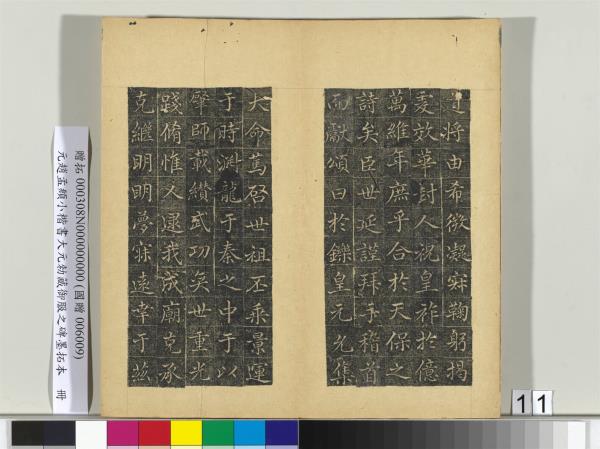 道將由希微凝寂鞠躬揭
虔放華封人祝皇祚於億
萬維年庶乎合於天保之
詩矣臣世延謹拜手稽首
而獻頌曰於鑠皇元允集
大命篤启世祖丕乘景運
于時淵龍于秦之中于以
肇師載纘武功奕世重光
踐脩惟乂逮我成廟克承
克繼明明夢寐遠孝于茲
贈拓 000308N000000000 (國贈 006009)
元趙孟頫小楷書大元勅藏御服之碑墨拓本 冊
11